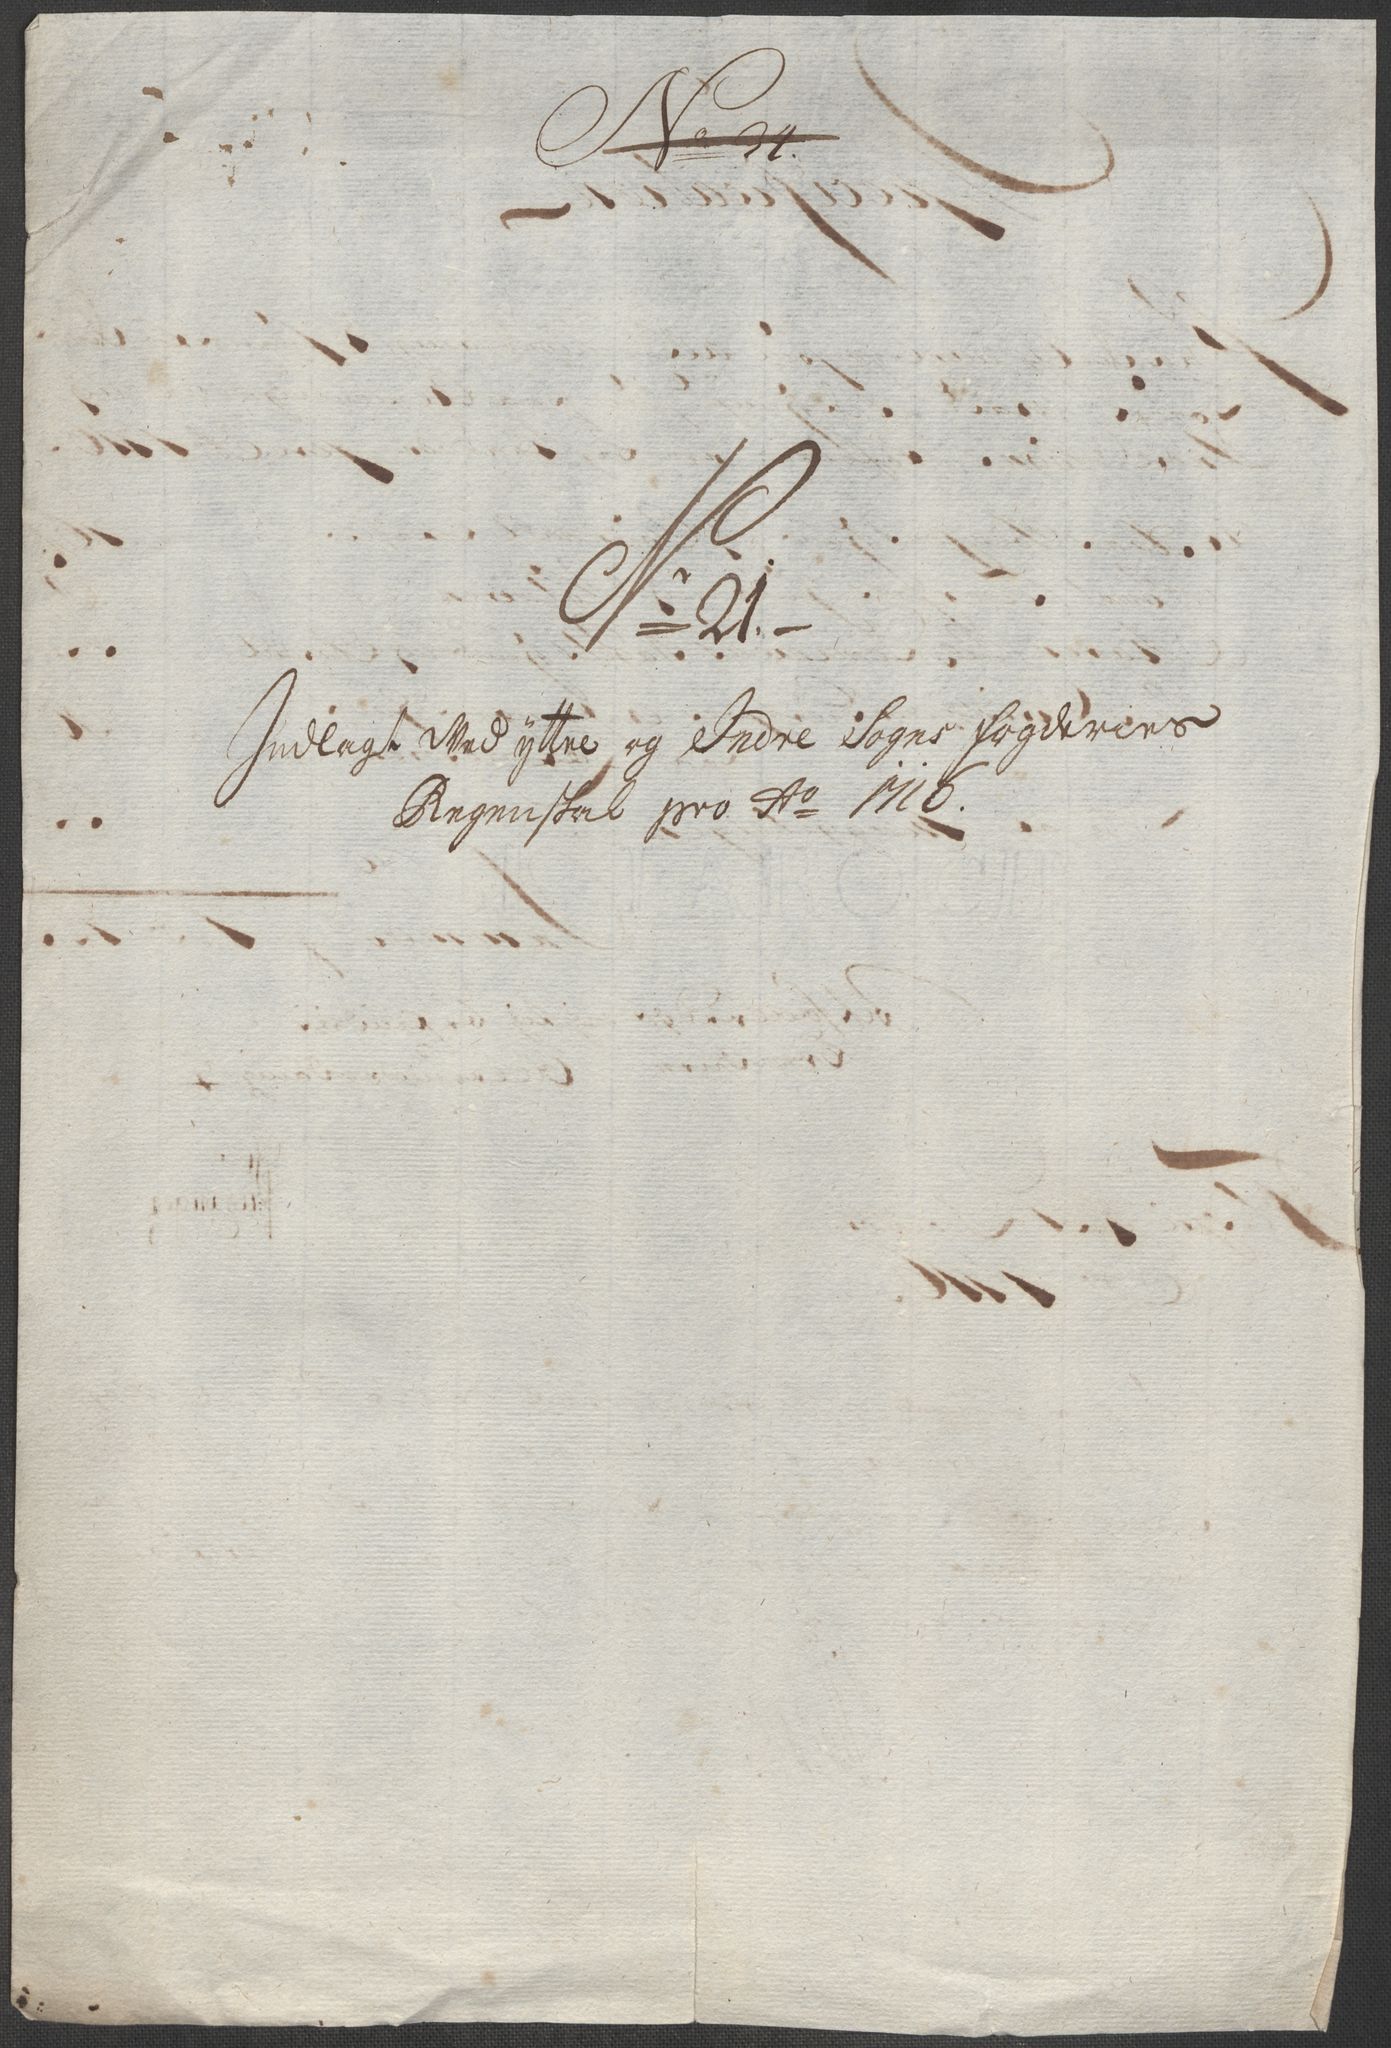 No 24.
No 21.
Indlagt Ved ÿttre og Indre Sogns fogderies
Regenskab pro Ao 1716.